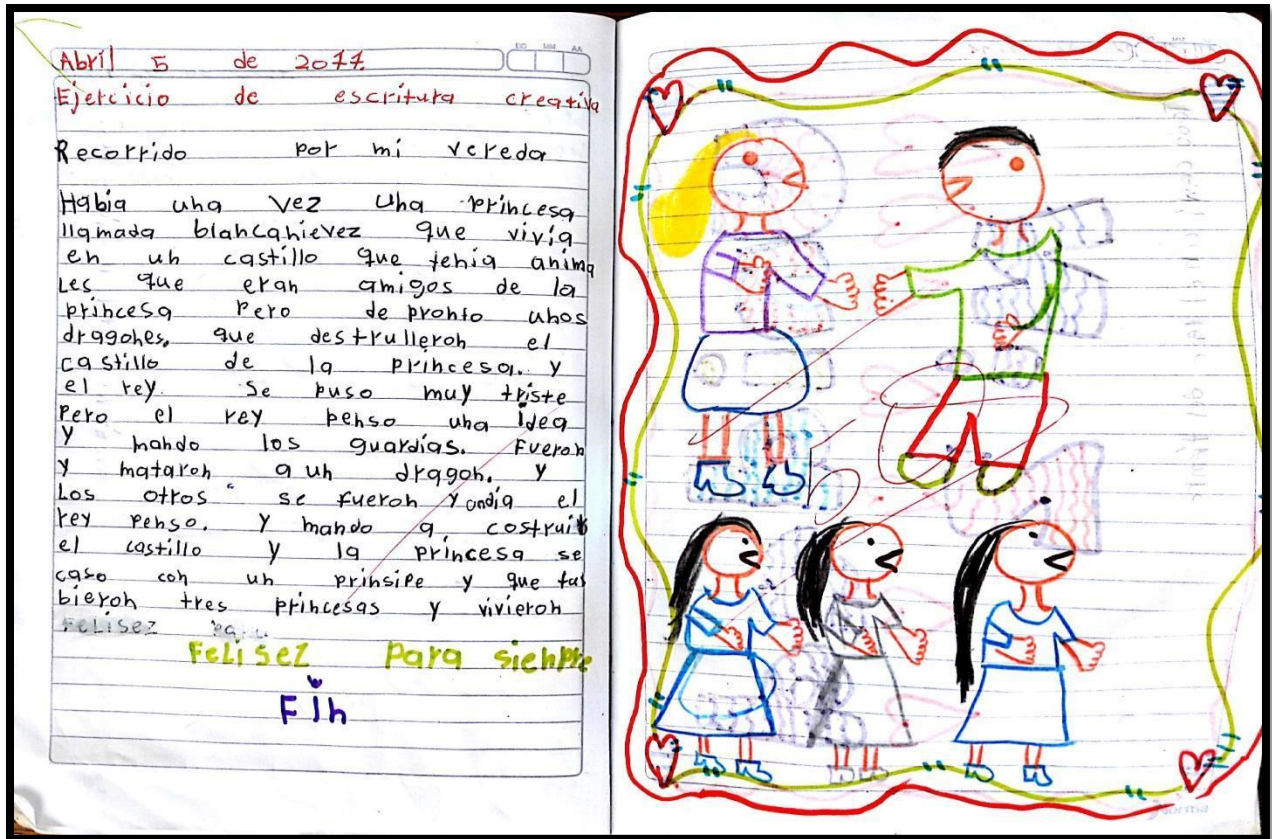 Abril 5 de 2017
Ejercicio de escritura creativa
Recorrido por mi vereda
Había una vez una princesa
llamada blancanievez que vivía
en un castillo que tenía anima
Les que eran amigos de la
princesa Pero de pronto unos
dragones. que destrulleron el
castillo de la princesa. y
el rey. Se puso muy triste
Pero el rey penso una idea
y mando los guardias. Fueron
y mataron a un dragon. y
Los otros se fueron y undía el
rey Penso. Y mando a costruir
el castillo y la princesa se
caso con un prinsipe y que tu
bieron tres princesas y vivieron
Felisez para
Felisez Para siempre
Fin